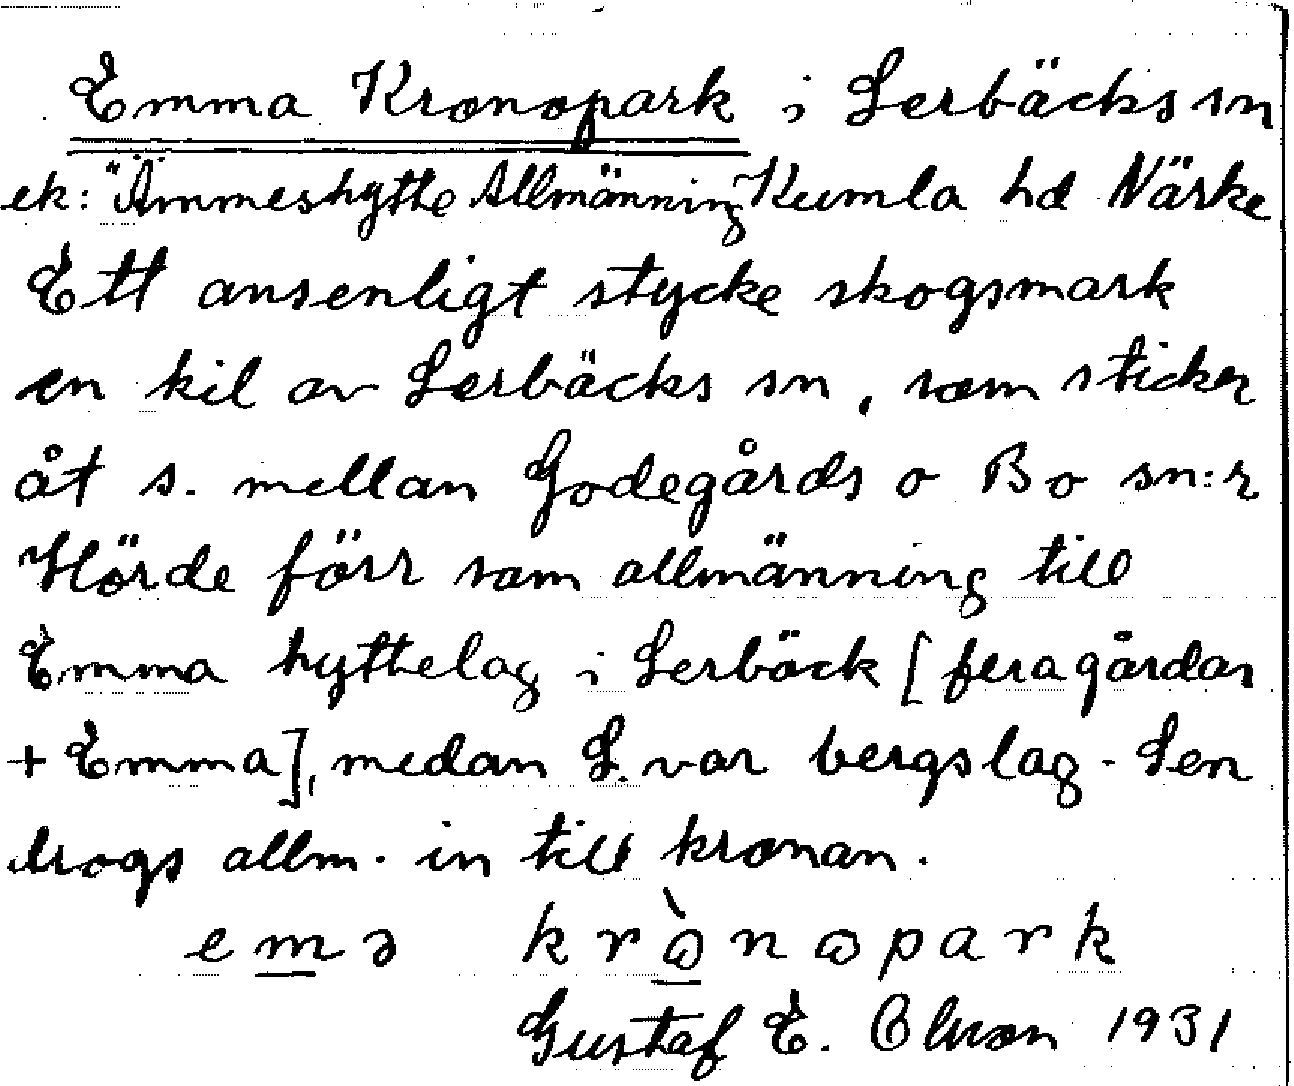 Emma Kronopark i Lerbäcks sn
ek: "Ämmeshytte Allmänning" Kumla hd Närke
Ett ansenligt stycke skogsmark
en kil av Lerbäcks sn, som sticker
åt s. mellan Godegårds o Bo sn:r
Hörde förr som allmänning till
Emma hyttelag i Lerbäck [fera gårdar
+ Emma], medan L. var bergslag - Sen
drogs allm. in till kronan.
emə krὼnɷpark
Gustaf E. Olsson 1931